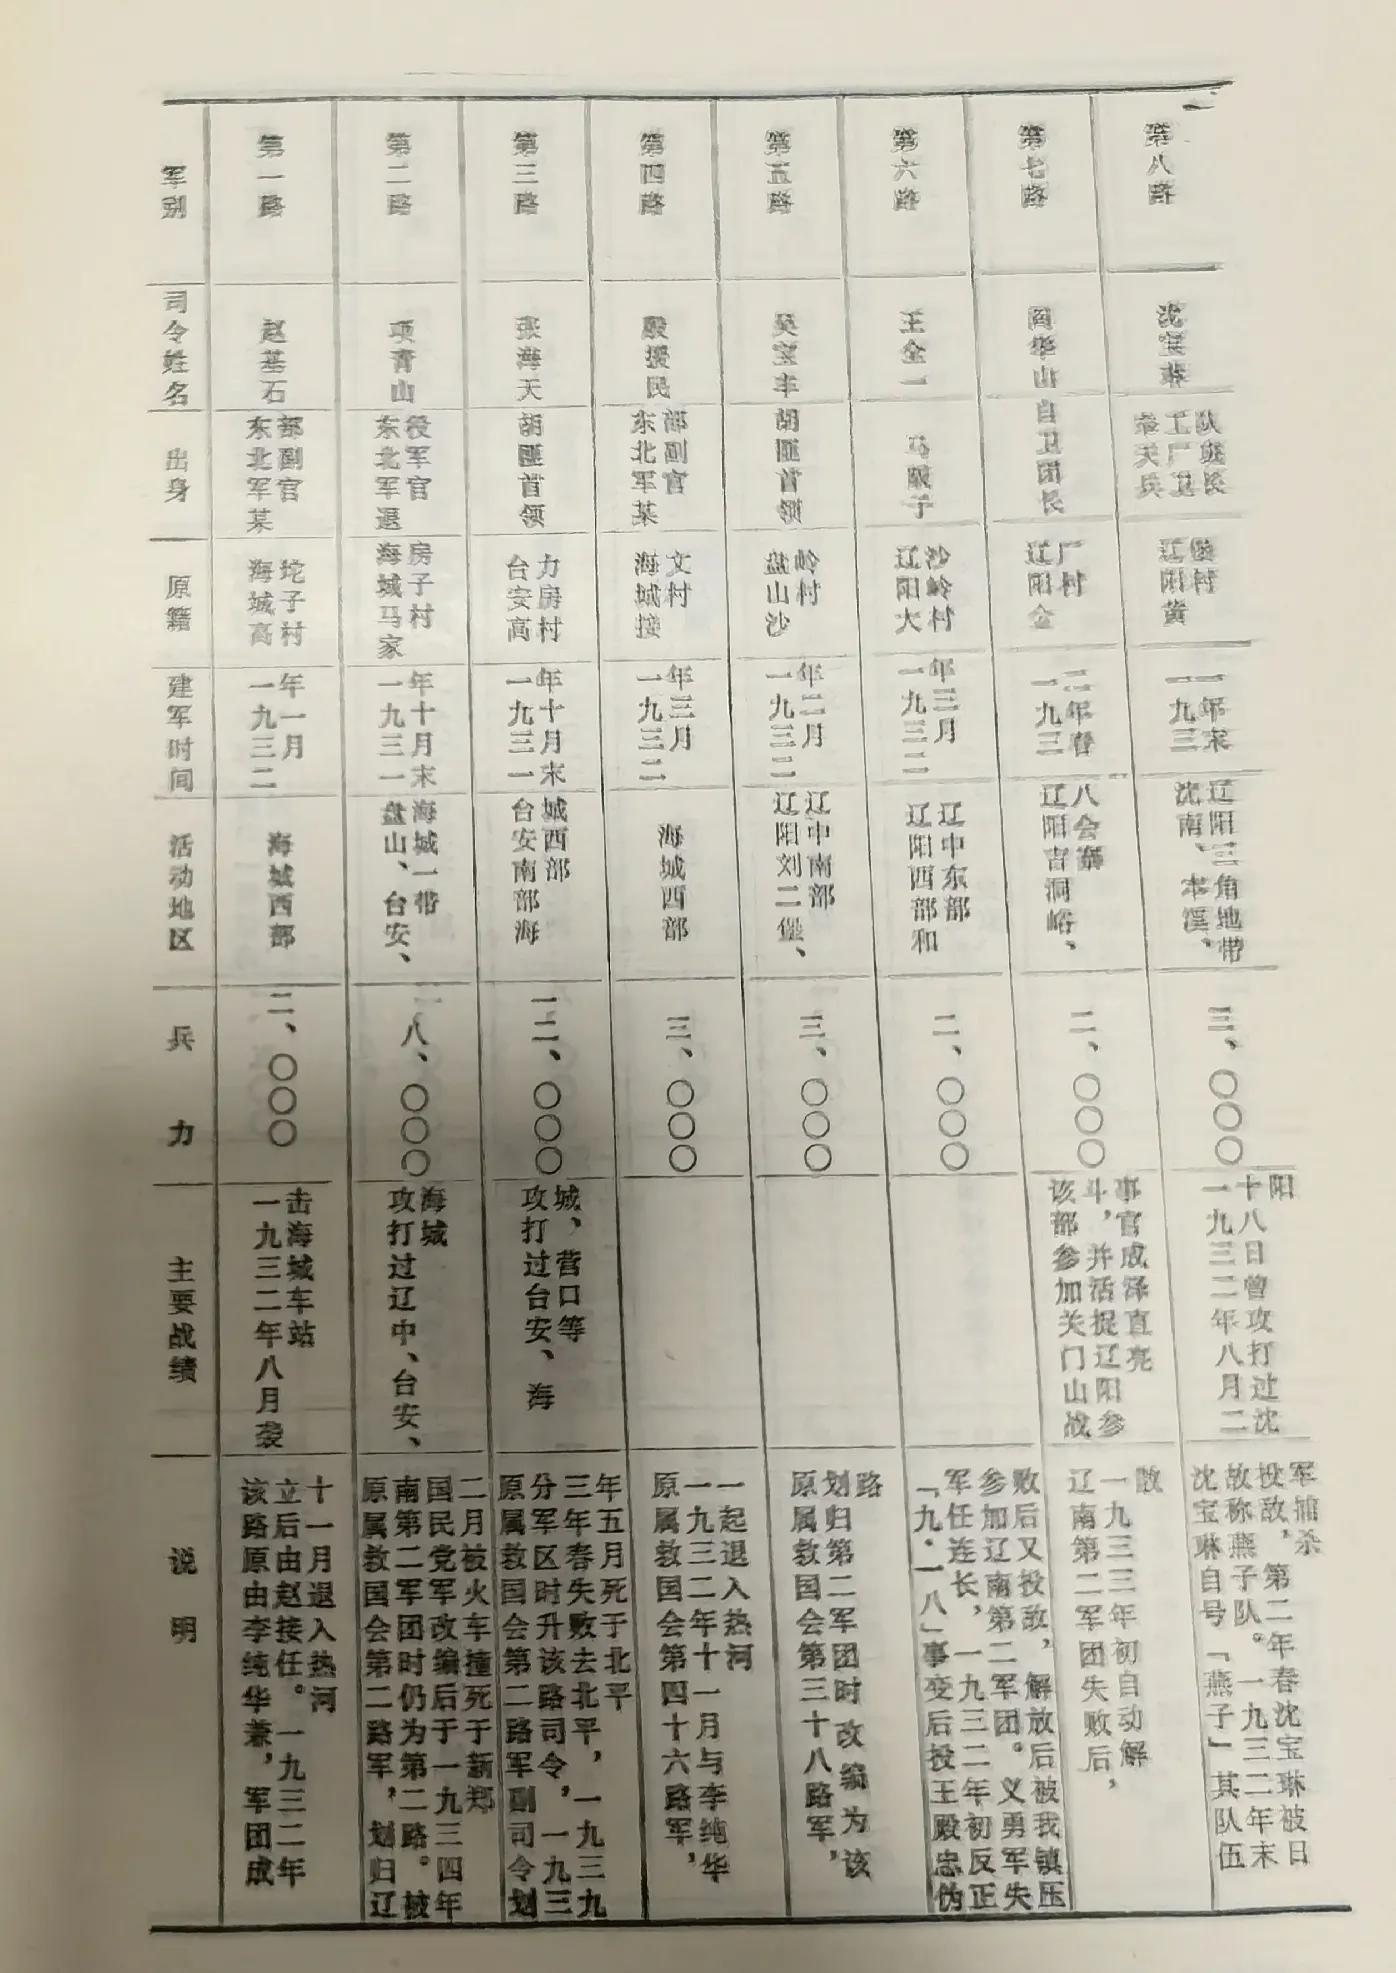 军别
司令姓名
出身
原籍
建军时间
活动地区
兵力
主要战绩
说明
第一路
赵基石
东北军某
部副官
海城高
坨子村
一九三二
年一月
海城西部
二、〇〇〇
一九三二年八月袭
击海城车站
该路原由李纯华兼，军团成
立后由赵接任。一九三二年
十一月退入热河
第二路
项青山
东北军退
役军官
海城马家
房子村
一九三一
年十月末
盘山、台安、
海城一带
一八、〇〇〇
攻打过辽中、台安、
海城
原属救国会第二路军，划归辽
南第二军团时仍为第二路。被
国民党军改编后于一九三四年
二月被火车撞死于新郑
第三路
张海天
胡匪首领
台安高
力房村
一九三一
年十月末
台安南部海
城西部
一二、〇〇〇
攻打过台安、海
城，营口等
原属救国会第二路军副司令划
分军区时升该路司令，一九三
三年春失败去北平，一九三九
年五月死于北平
第四路
殷援民
东北军某
部副官
海城接
文村
一九三二
年三月
海城西部
三、〇〇〇
原属救国会第四十六路军，
一九三二年十一月与李纯华
一起退入热河
第五路
吴宝丰
胡匪首领
盘山沙
岭村
一九三二
年二月
辽阳刘二堡、
辽中南部
三、〇〇〇
原属救国会第三十八路军，
划归第二军团时改编为该
路
第六路
王全一
马贩子
辽阳大
沙岭村
一九三二
年三月
辽阳西部和
辽中东部
二、〇〇〇
「九·一八」事变后投王殿忠伪
军任连长，一九三二年初反正
参加辽南第二军团。义勇军失
败后又投敌，解放后被我镇压
第七路
阎华山
自卫团长
辽阳金
厂村
一九三
二年春
辽阳吉洞峪、
八会寨
二、〇〇〇
该部参加关门山战
斗，并活捉辽阳参
事官成泽直亮
辽南第二军团失败后，
一九三三年初自动解
散
第八路
沈宝琳
奉天兵
工厂卫
队长
辽阳黄
村
一九三
一年末
沈南、本溪、
辽阳三角地带
三、〇〇〇
一九三二年八月二
十八日曾攻打过沈
阳
沈宝琳自号「燕子」其队伍
故称燕子队。一九三二年末
投敌，第二年春沈宝琳被日
军捕杀